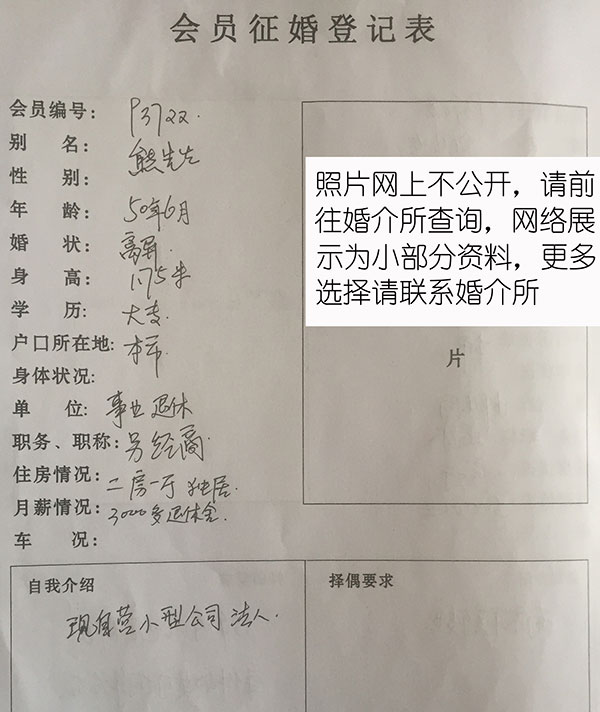 会员征婚登记表
会员编号: P3722.
别 名: 熊先生
性 别:
年 龄: 50年6月
婚 状: 离异
身 高: 1.75米
学 历: 大专
户口所在地: 本市
身体状况:
单 位: 事业退休
职务、职称: 另经商
住房情况: 二房一厅 独居.
月薪情况: 3000多退休金.
车 况:
照片网上不公开，请前
往婚介所查询，网络展
示为小部分资料，更多
选择请联系婚介所
片
自我介绍
现自营小型公司法人.
择偶要求